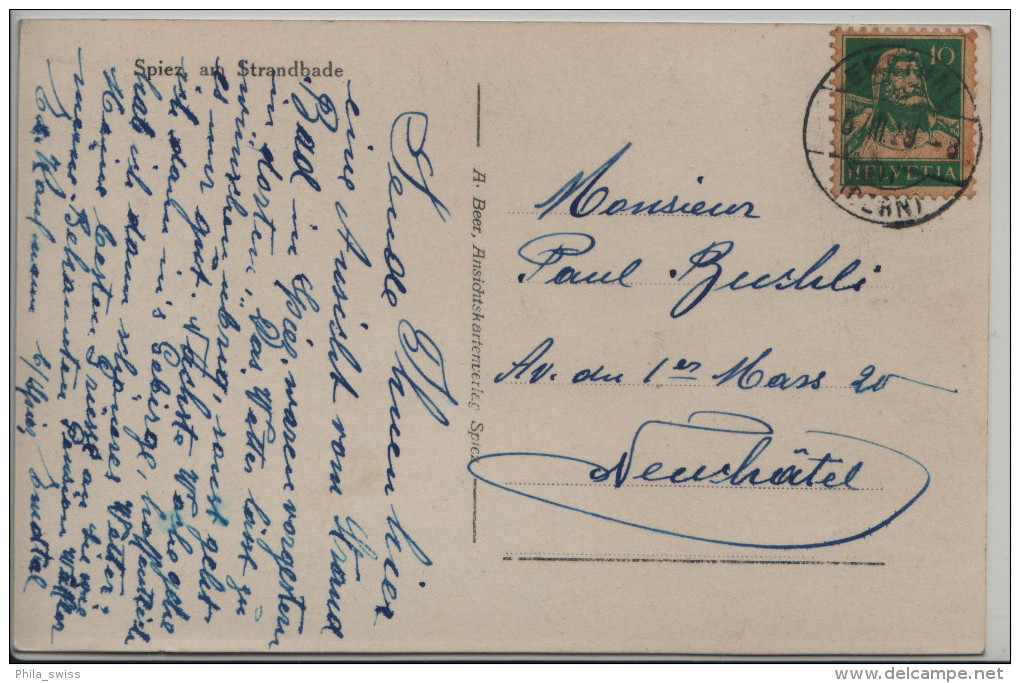 Spiez am Strandbade
Sende Ihnen hier
eine Ansicht vom Strand
Bad in Spiez, waren vorgestern
in dorten. Das Wetter lässt zu
wünschen übrig, sonst geht
es mir gut. Nächste Woche gehe
ich dann in's Gebirge, hoffentlich
hab ich dann schöneres Wetter;
Meine besten Grüsse an sie wie
Bekannten Pension
E. Kaufmann b/Spiez
A. Beer, Ansichtskartenverlag Spiez
10
HELVETIA
(BERN)
Monsieur
Paul
Av. du 1er Mars 20
Neuchâtel
Phila_swiss
delcampe.net